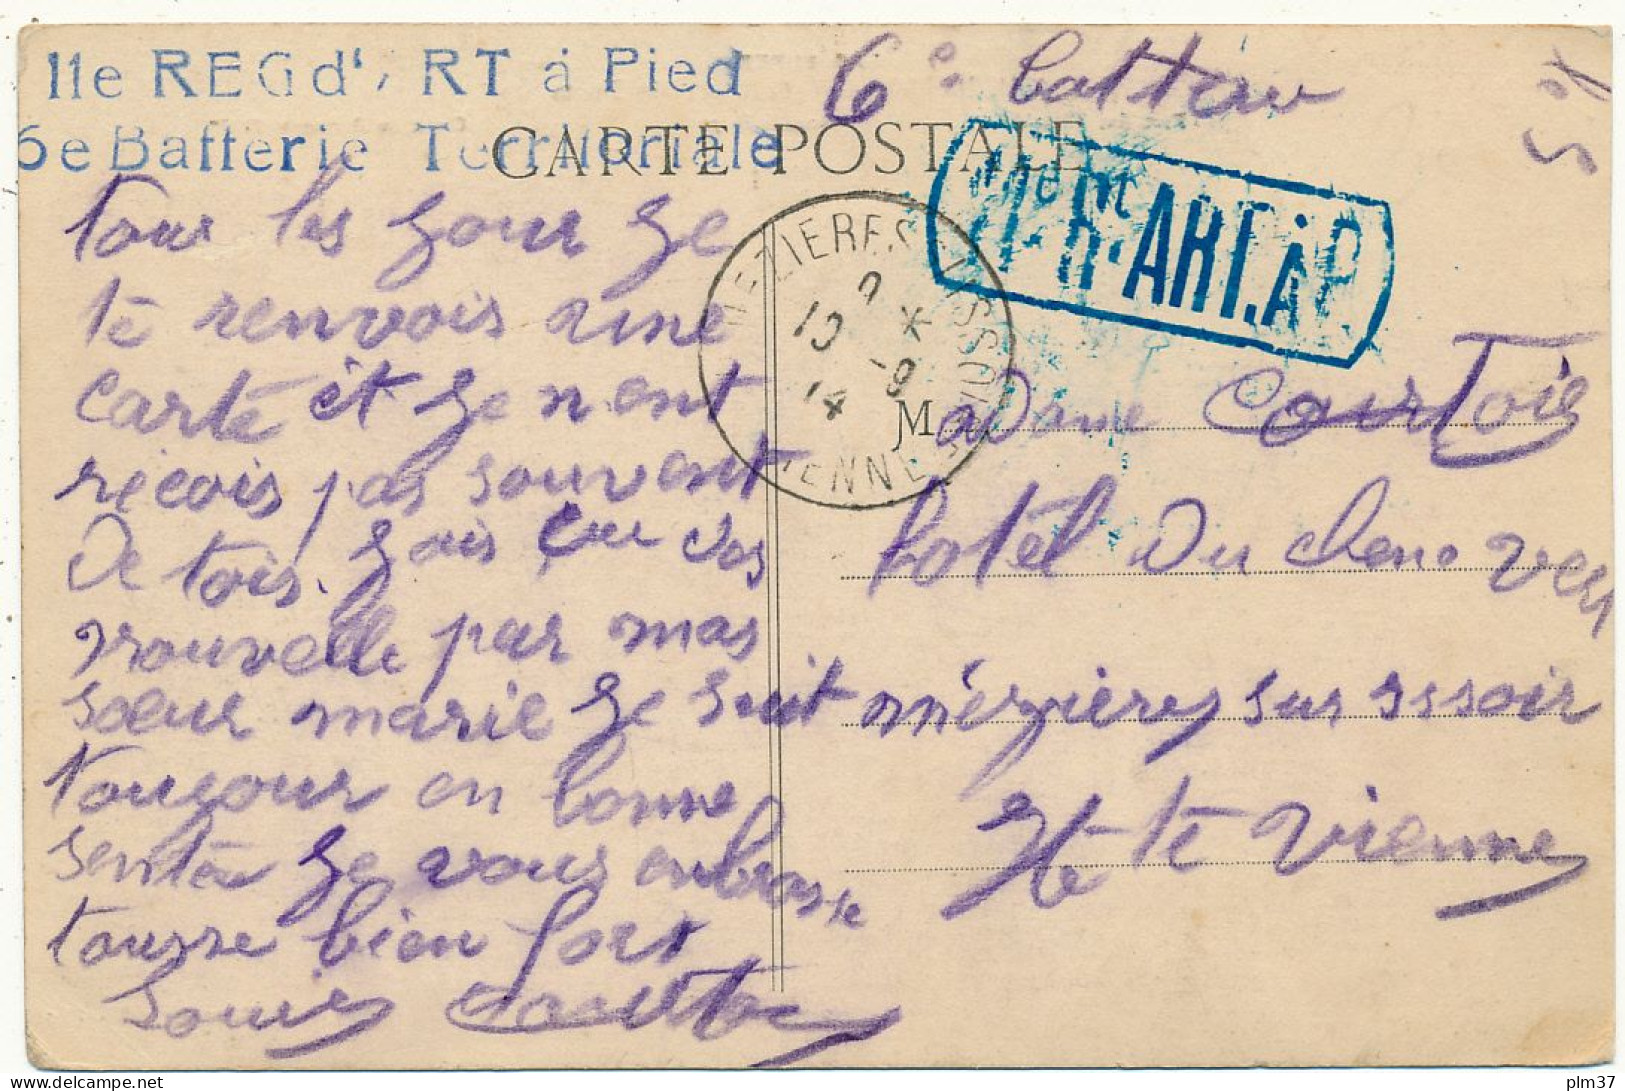 11e REG d' RT à Pied
6e Batterie Territoriale
CARTE POSTALE
6e batterie
11e Rt ART. à P.
MEZIERES S ISSOIRE
VIENNE
10 -9
14
tour les jour je
te renvois une
carte et je n ent
reçois pas souvent
De tois. jais eu des
nouvelle par mas
soeur marie je suit
toujour en bonne
sentée je vous enbrasse
tousse bien fort
Louis Courtois
Madame Courtois
hotel Du chene vert
mézières sur issoir
Hte Vienne
plm37